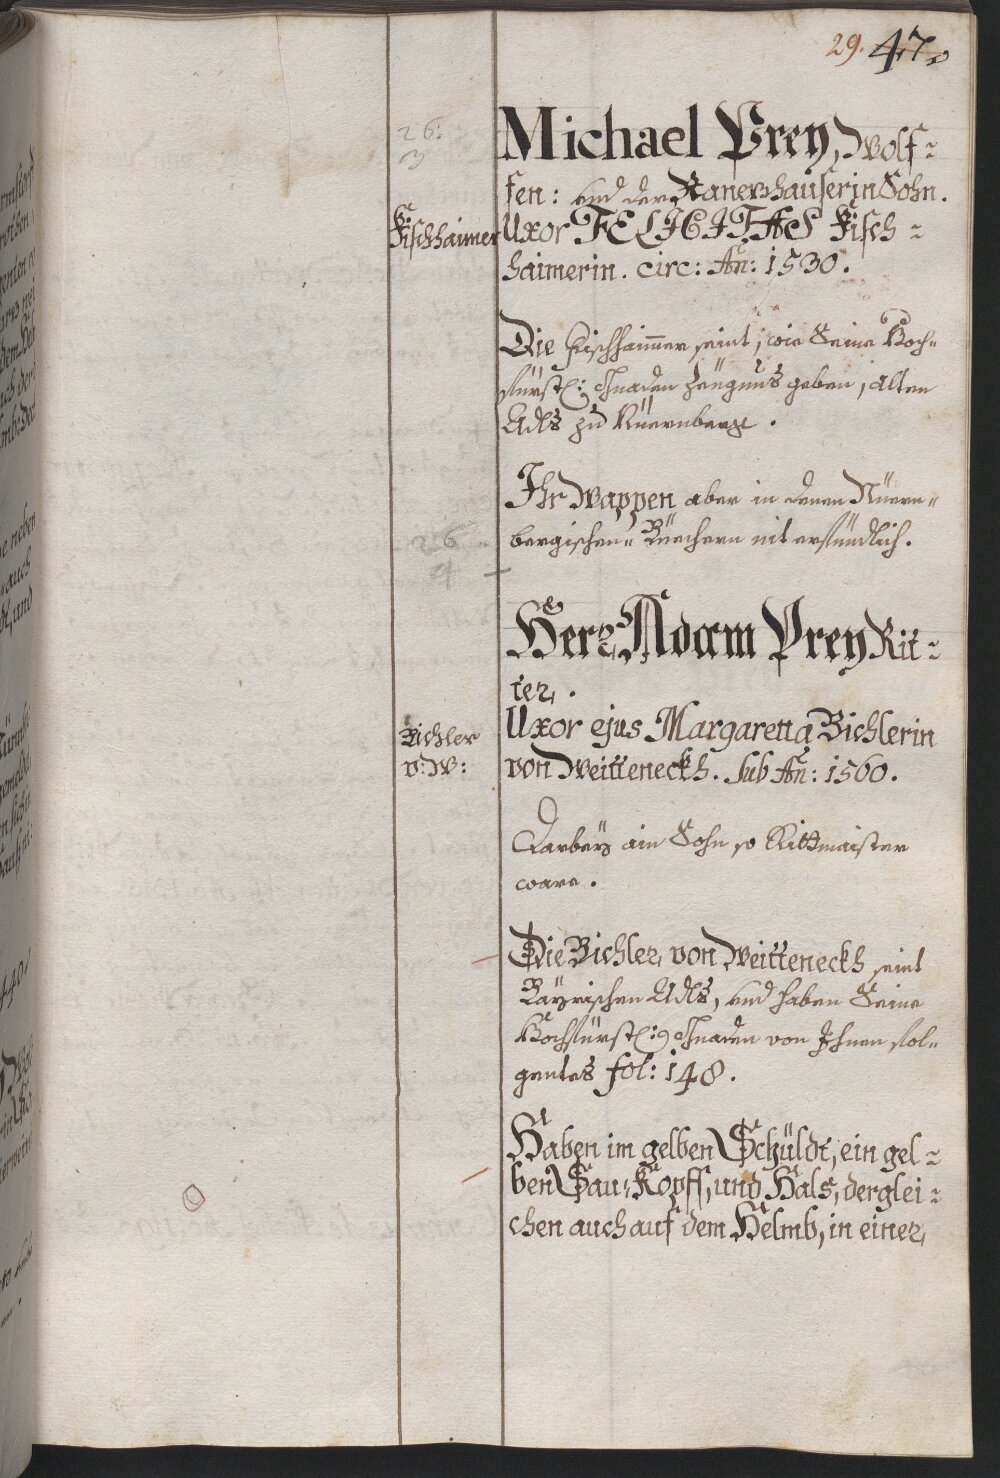 29. 47.
26:
3
Michael Preÿ, Wolf=
sen: und der Ranershauserin Sohn.
Fischhaimer
Uxor FELICITAS Fisch=
haimerin. circ: An: 1530.
Die Fischhaimer seint, wie Seine Hoch=
fürstl: Gnaden Zeügnus geben, alten
Adls zu Nüernberg.
Ihr Wappen aber in denen Nüern=
bergischen Büechern nit erfündlich.
26
4
Herr Adam Preÿ Rit=
ter.
Uxor ejus Margaretta Bichlerin
von Weitteneckh. sub An: 1560.
Bichler
v: W:
Darbeÿ ain Sohn so Rittmaister
ware.
Die Bichler von Weitteneckh seint
Baÿrischen Adls, und haben Seine
Hochfürstl: Gnaden von Ihnen fol=
gentes fol: 148.
Haben im gelben Schüldt, ein gel=
ben Sau=Kopff, und Hals, derglei=
chen auch auf dem Helmb, in einer